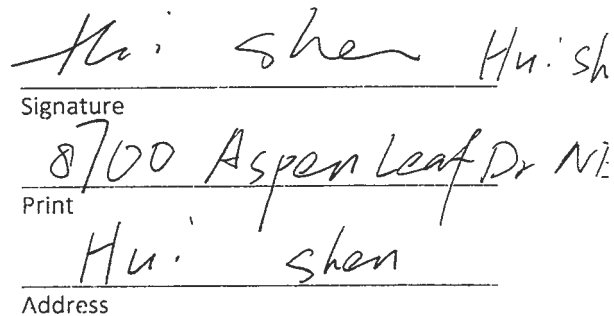 Hui shen Hui sh
Signature
8700 Aspen Leaf Dr NE
Print
Hui shen
Address